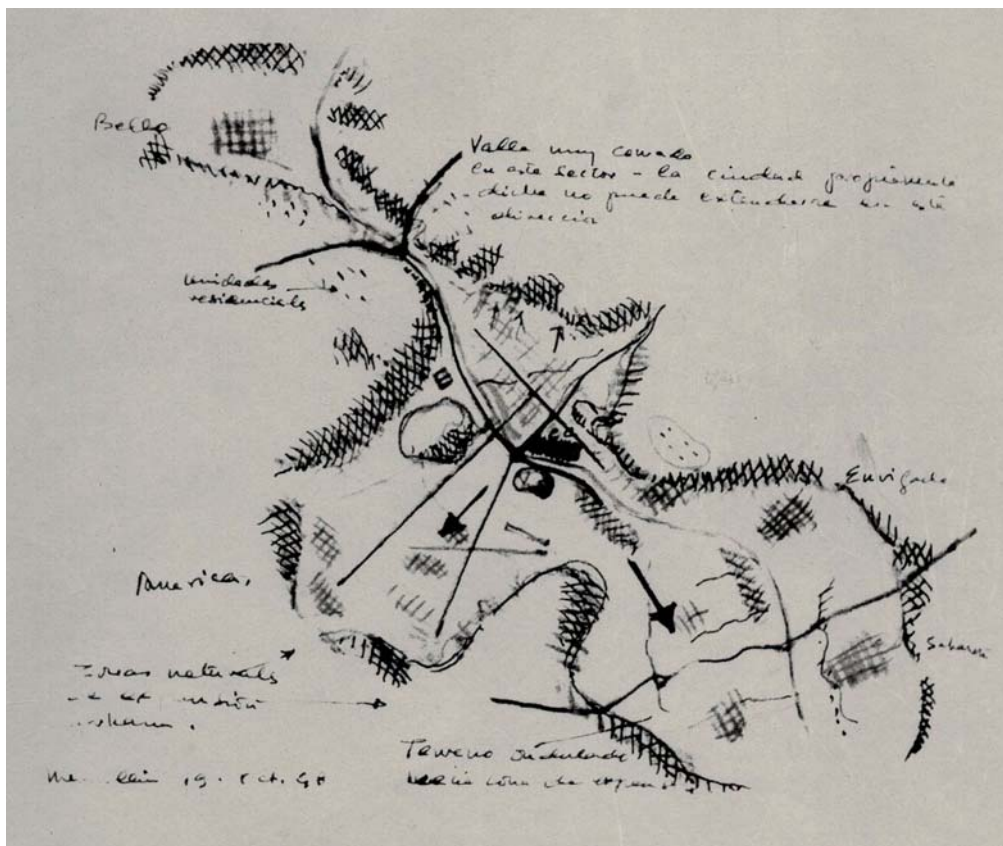 Bello
Valle muy cerrado
en este sector - la ciudad propiamente
dicha no puede extenderse en esta
direccion
unidades
residenciales
Envigado
Americas
Sabaneta
zonas naturales
de expansión
urbana.
Terreno ondulado